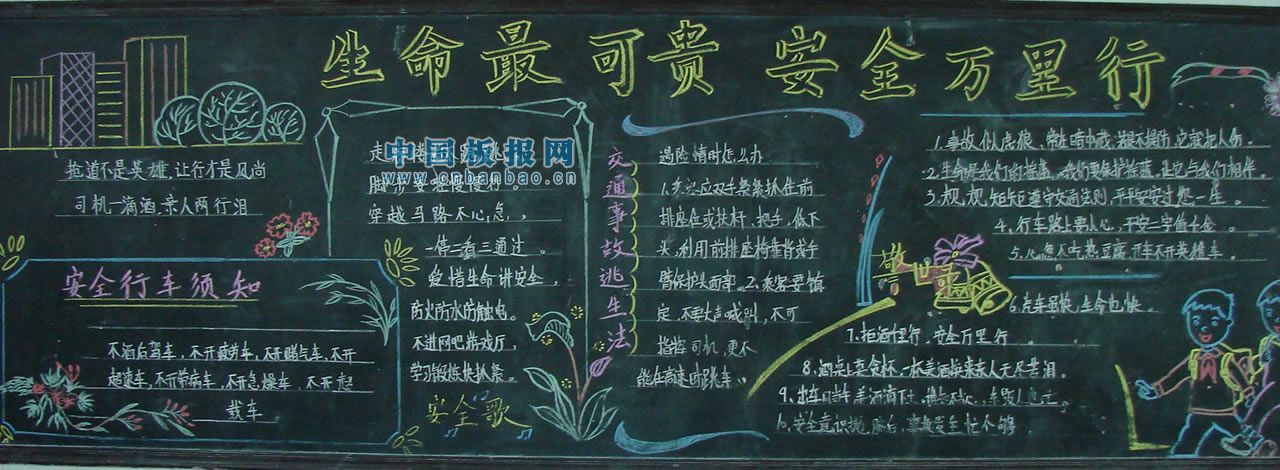 生命最可贵 安全万里行
抢道不是英雄,让行才是风尚
司机一滴酒,亲人两行泪
安全行车须知
不酒后驾车,不开疲劳车,不开赌气车,不开
超速车,不开带病车,不开急躁车,不开超
载车
中国板报网
www.cnbanbao.cn
穿越马路不心急,
一停二看三通过。
爱惜生命讲安全,
防火防水防触电。
不进网吧游戏厅,
学习锻炼快抓紧。
安全歌
交通事故逃生法
遇险情时怎么办
1.乘客应双手紧紧抓住前
排座位或扶杆、把手,低下
头,利用前排座椅靠背或手
臂保护头面部。2.乘客要镇
定,不要大声喊叫,不可
指挥司机,更不
能在高速时跳车。
警世钟
1.事故似虎狼,常在暗中藏,若是不提防,它就把人伤。
2.生命是我们的摇篮,我们要保护摇篮,让它与我们相伴。
3.规规矩矩遵守交通法则,平平安安过一生。
4.行车路上要小心,平安二字值千金。
5.心急不吃热豆腐,开车不开英雄车。
6.汽车虽快,生命也快。
7.拒酒千里行,安全万里行
8.酒桌上莫贪杯,一杯美酒换来亲人无尽苦泪。
9.出车时当
10.安全意识